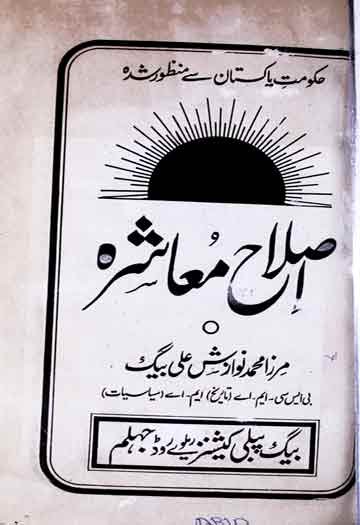 حکومتِ پاکستان سے منظور شدہ
اِصلاحِ مُعاشرہ
مرزا محمد نوازش علی بیگ
بی ایس سی - ایم - اے (تاریخ) ایم - اے (سیاسیات)
بیگ پبلی کیشنز ریلوے روڈ جہلم